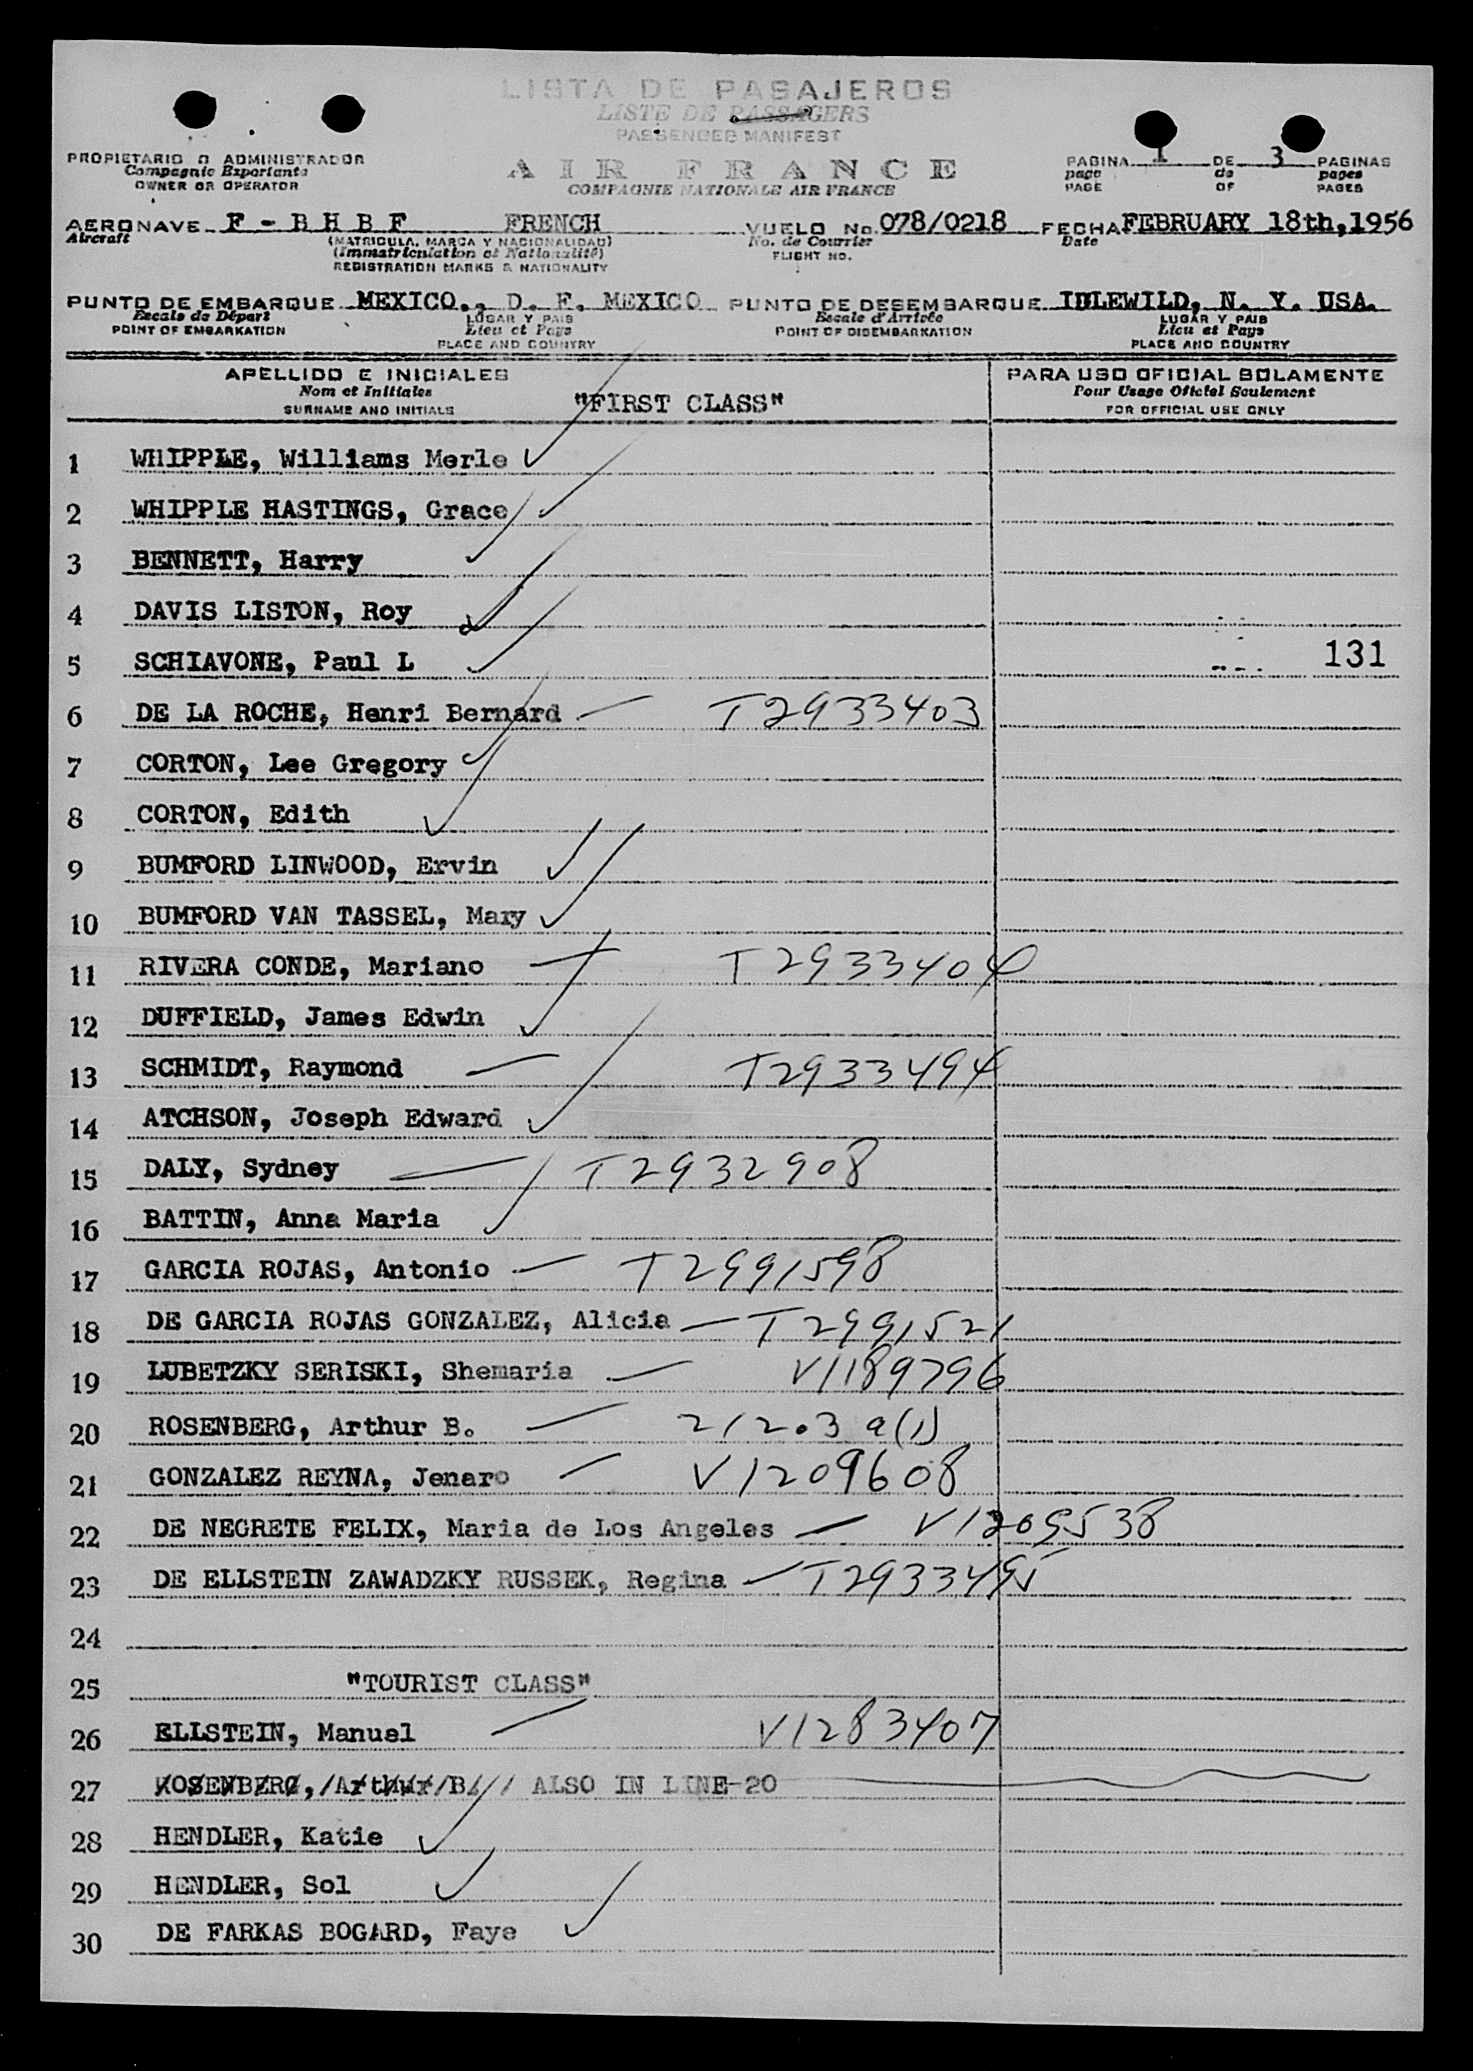 LISTA DE PASAJEROS
LISTE DE PASSAGERS
PASSENGER MANIFEST
PROPIETARIO O ADMINISTRADOR
Compagnie Exportante
OWNER OR OPERATOR
AIR FRANCE
COMPAGNIE NATIONALE AIR FRANCE
PAGINA 1 DE 3 PAGINAS
page de pages
PAGE OF PAGES
AERONAVE F - B H B F FRENCH VUELO No. 078/0218 FECHA FEBRUARY 18th, 1956
Aircraft (MATRICULA, MARCA Y NACIONALIDAD) No. de Courrier Date
(Immatriculation et Nationalité) FLIGHT NO.
REGISTRATION MARKS & NATIONALITY
PUNTO DE EMBARQUE MEXICO,, D. F. MEXICO PUNTO DE DESEMBARQUE IDLEWILD, N. Y. USA.
Escale de Départ LUGAR Y PAIS Escale d'Arrivée LUGAR Y PAIS
POINT OF EMBARKATION Lieu et Pays POINT OF DISEMBARKATION Lieu et Pays
PLACE AND COUNTRY PLACE AND COUNTRY
APELLIDO E INICIALES PARA USO OFICIAL SOLAMENTE
Nom et Initiales "FIRST CLASS" Pour Usage Oficiel Seulement
SURNAME AND INITIALS FOR OFFICIAL USE ONLY
1 WHIPPLE, Williams Merle
2 WHIPPLE HASTINGS, Grace
3 BENNETT, Harry
4 DAVIS LISTON, Roy
5 SCHIAVONE, Paul L 131
6 DE LA ROCHE, Henri Bernard — T2933403
7 CORTON, Lee Gregory
8 CORTON, Edith
9 BUMFORD LINWOOD, Ervin
10 BUMFORD VAN TASSEL, Mary
11 RIVERA CONDE, Mariano — T2933404
12 DUFFIELD, James Edwin
13 SCHMIDT, Raymond — T2933494
14 ATCHSON, Joseph Edward
15 DALY, Sydney — T2932908
16 BATTIN, Anna Maria
17 GARCIA ROJAS, Antonio — T2991598
18 DE GARCIA ROJAS GONZALEZ, Alicia — T2991521
19 LUBETZKY SERISKI, Shemaria — V1189796
20 ROSENBERG, Arthur B. — 212.3 a(1)
21 GONZALEZ REYNA, Jenaro — V1209608
22 DE NEGRETE FELIX, Maria de Los Angeles — V1209538
23 DE ELLSTEIN ZAWADZKY RUSSEK, Regina — T2933495
24
25 "TOURIST CLASS"
26 ELLSTEIN, Manuel — V1283407
27 ROSENBERG, Arthur B. ALSO IN LINE-20
28 HENDLER, Katie
29 HENDLER, Sol
30 DE FARKAS BOGARD, Faye